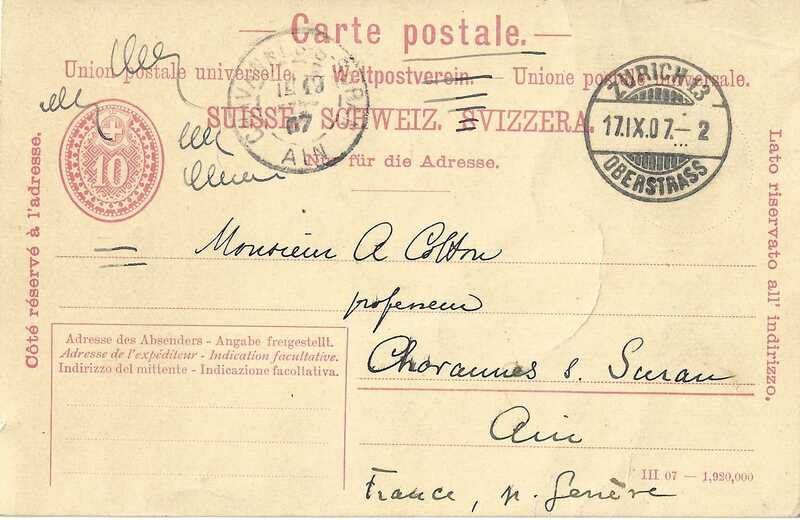 Carte postale.
Union postale universelle. — Weltpostverein. — Unione postale universale.
SUISSE. SCHWEIZ. SVIZZERA.
Nur für die Adresse.
ZÜRICH 13
17.IX.07.– 2
OBERSTRASS
07
AIN
10
Côté réservé à l'adresse.
Lato riservato all' indirizzo.
Monsieur A Colton
professeur
Chavannes s. Suran
Ain
France, p. Genève
Adresse des Absenders - Angabe freigestellt.
Adresse de l'expéditeur - Indication facultative.
Indirizzo del mittente - Indicazione facoltativa.
III 07 — 1,920,000